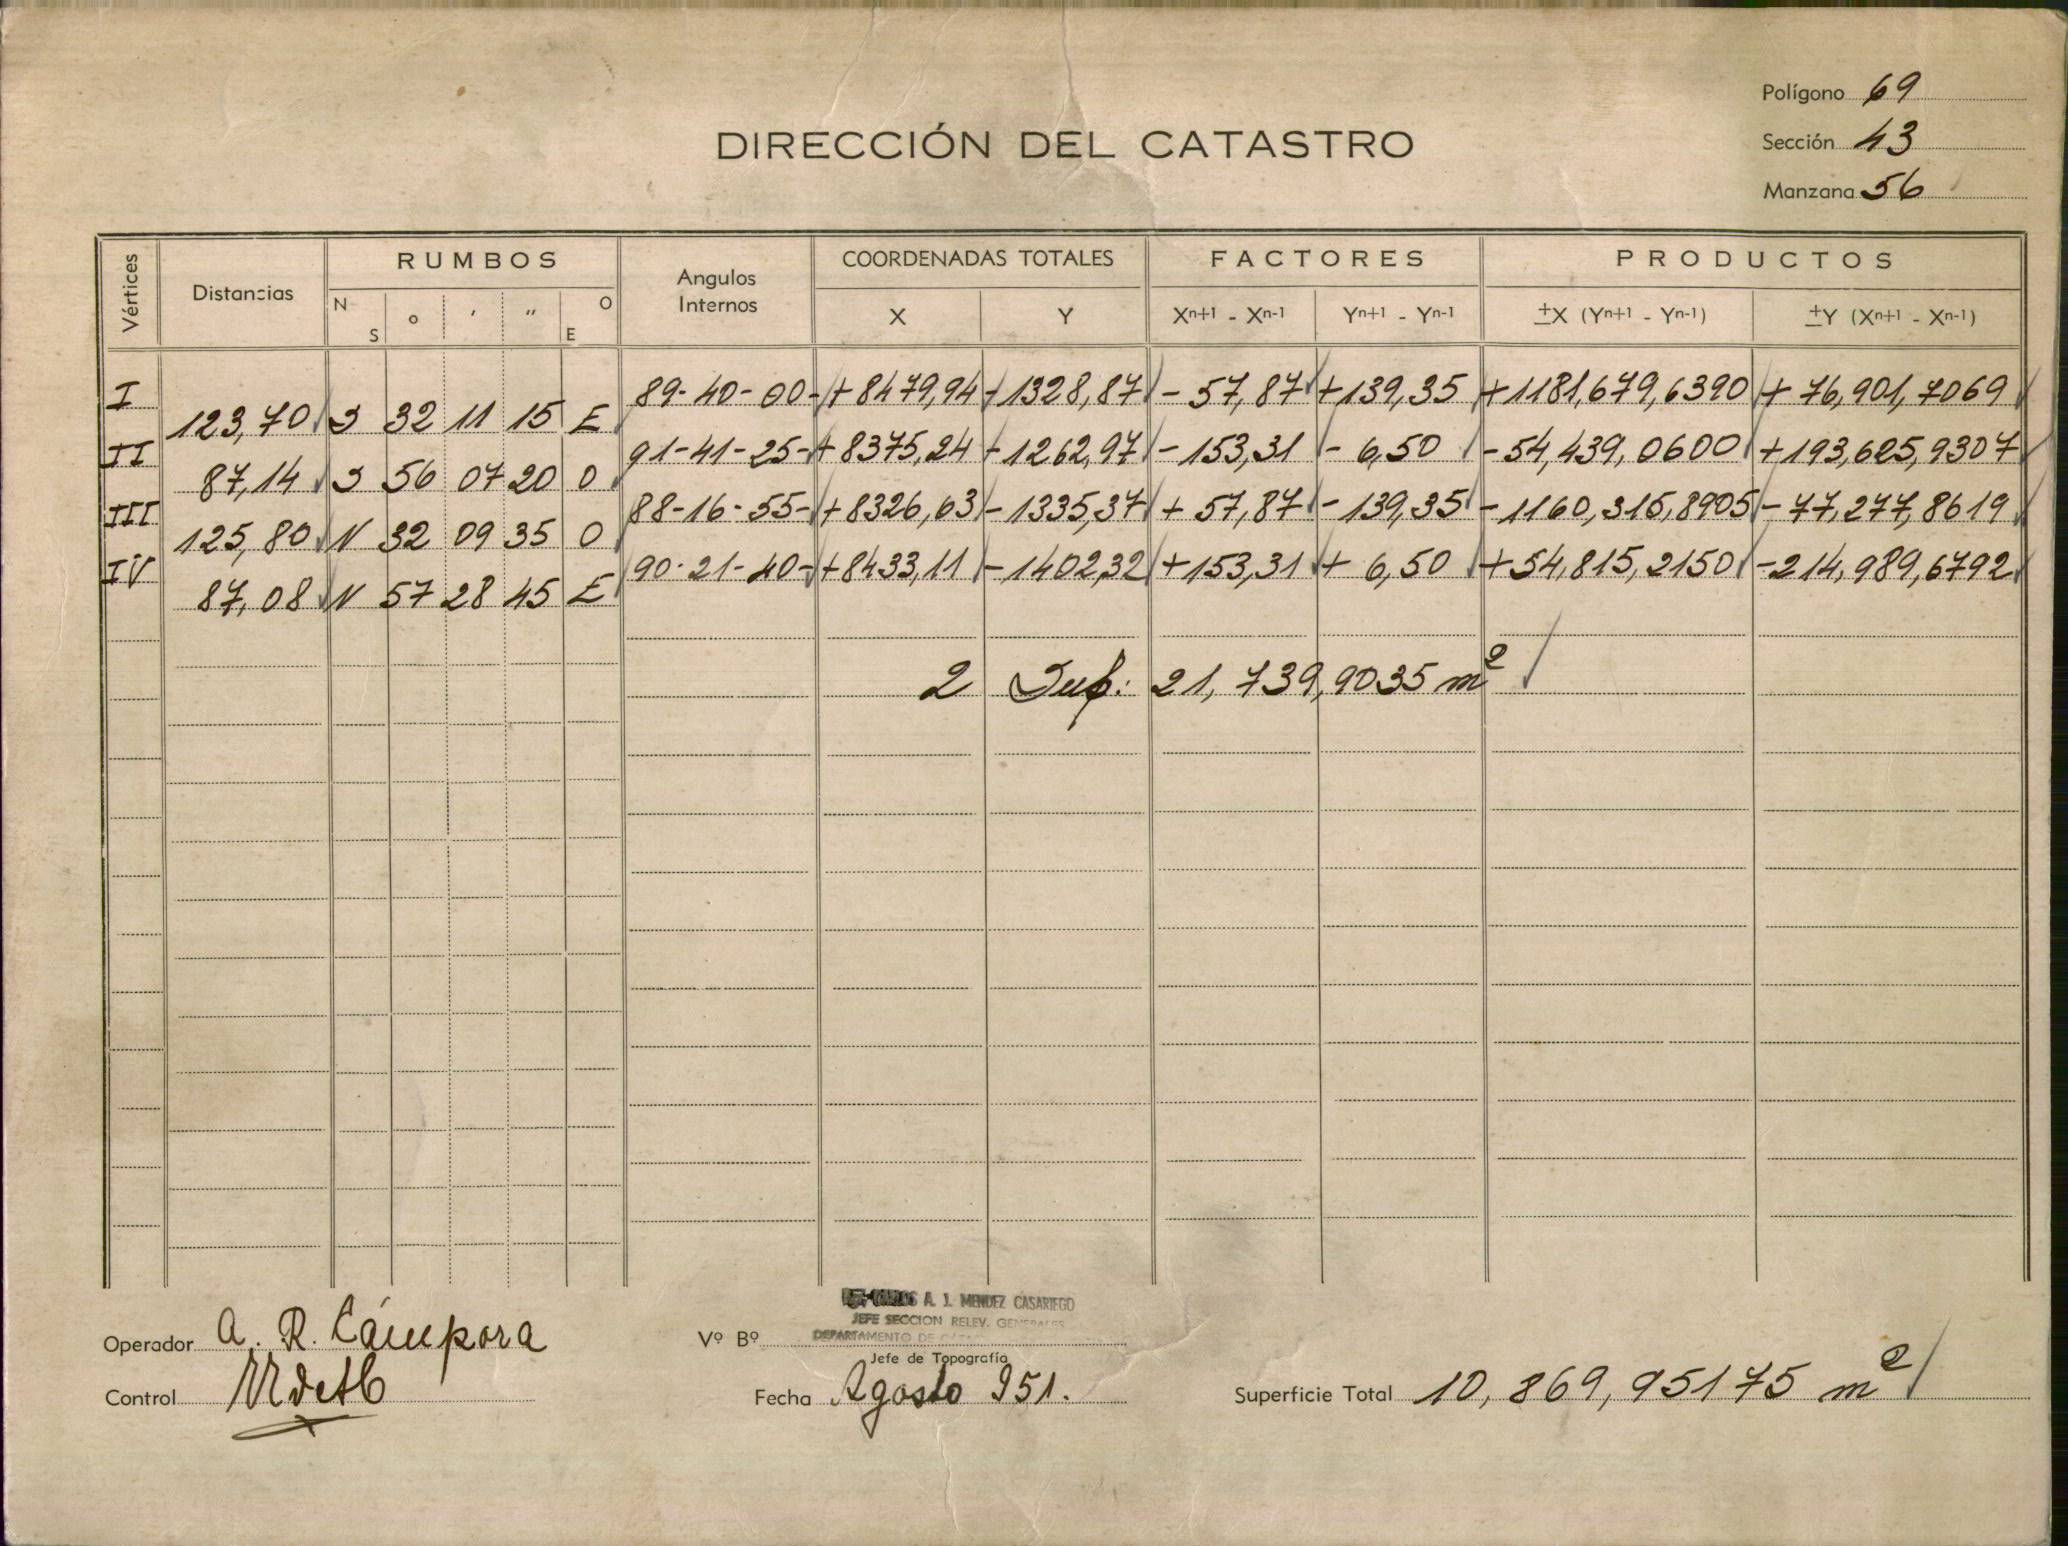 Polígono 69
DIRECCIÓN DEL CATASTRO
Sección 43
Manzana 56
Vértices Distancias RUMBOS Angulos Internos COORDENADAS TOTALES FACTORES PRODUCTOS
N S ° ′ ″ O E X Y Xn+1 - Xn-1 Yn+1 - Yn-1 ±X (Yn+1 - Yn-1) ±Y (Xn+1 - Xn-1)
I 89-40-00- +8479,94 -1328,87 -57,87 +139,35 +1181,679,6390 +76,901,7069
123,70 S 32 11 15 E
II 91-41-25- +8375,24 -1262,97 -153,31 -6,50 -54,439,0600 +193,625,9307
87,14 S 56 07 20 O
III 88-16-55- +8326,63 -1335,37 +57,87 -139,35 -1160,315,8905 -77,277,8619
125,80 N 32 09 35 O
IV 90-21-40- +8433,11 -1402,32 +153,31 +6,50 +54,815,2150 -214,989,6792
87,08 N 57 28 45 E
2 Sup: 21,739,9035 m²
A. J. MENDEZ CASARIEGO
JEFE SECCION RELEV. GENERALES
Operador A. R. Cámpora Vº Bº DEPARTAMENTO DE
Jefe de Topografía
Control Fecha Agosto 951. Superficie Total 10,869,95175 m²